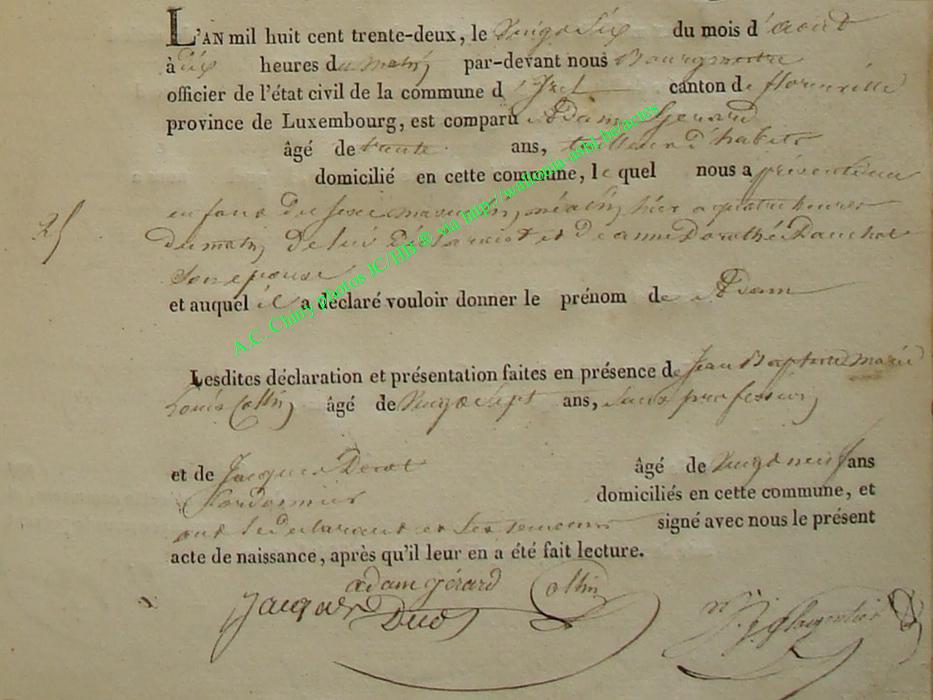 L'AN mil huit cent trente-deux, le vingt six du mois d'août
à dix heures du matin par-devant nous Bourgmestre
officier de l'état civil de la commune d'Izel canton de florenville
province de Luxembourg, est comparu Adam Gerard
âgé de trente ans, tailleur d'habits
domicilié en cette commune, lequel nous a présenté un
enfant du sexe masculin, né hier a quatre heures
25
du matin de lui Déclarant et d'anne Dorothé
son epouse
et auquel il a déclaré vouloir donner le prénom de Adam
Lesdites déclaration et présentation faites en présence de Jean Baptiste marie
Louis Collin âgé de vingt sept ans, sans profession
et de Jacques Ducot âgé de vingt neuf ans
Cordonnier domiciliés en cette commune, et
ont le declarant et les temoins signé avec nous le présent
acte de naissance, après qu'il leur en a été fait lecture.
adam gérard Collin
Jacques Ducot
A.C. Chiny photos JC/HB © via http://wallonia-asbl.be/actes